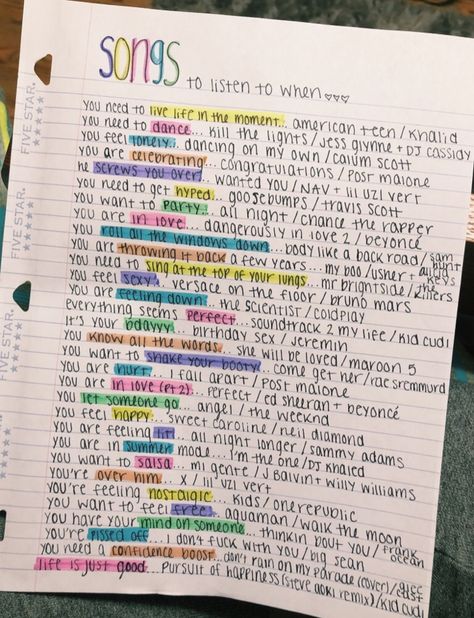 SONGS
to listen to when...♡♡♡
you need to live life in the moment... american teen / khalid
you need to dance... kill the lights / jess glynne + DJ cassidy
you feel lonely... dancing on my own / calum scott
you are celebrating... congratulations / post malone
he screws you over... wanted you / NAV + lil uzi vert
you need to get hyped... goosebumps / travis scott
you want to party... all night / chance the rapper
you are in love... dangerously in love 2 / beyoncé
you roll all the windows down... body like a back road / sam hunt
you are throwing it back a few years... my boo / usher + alicia keys
you need to sing at the top of your lungs... mr brightside / the killers
you feel sexy... versace on the floor / bruno mars
you are feeling down... the scientist / coldplay
everything seems perfect... soundtrack 2 my life / kid cudi
it's your bdayyy... birthday sex / jeremih
you know all the words... she will be loved / maroon 5
you want to shake your booty... come get her / rae sremmurd
you are hurt... I fall apart / post malone
you are in love (pt 2)... perfect / ed sheeran + beyoncé
you let someone go... angel / the weeknd
you feel happy... sweet caroline / neil diamond
you are feeling lit... all night longer / sammy adams
you are in summer mode... I'm the one / DJ khaled
you want to salsa... mi gente / J Balvin + willy williams
you're over him... X / lil uzi vert
you're feeling nostalgic... kids / onerepublic
you want to feel free... aquaman / walk the moon
you have your mind on someone... thinkin bout you / frank ocean
you're pissed off... I don't fuck with you / big sean
you need a confidence boost... don't rain on my parade (cover) / glee cast
life is just good... pursuit of happiness (steve aoki remix) / kid cudi
FIVE STAR.
FIVE STAR.